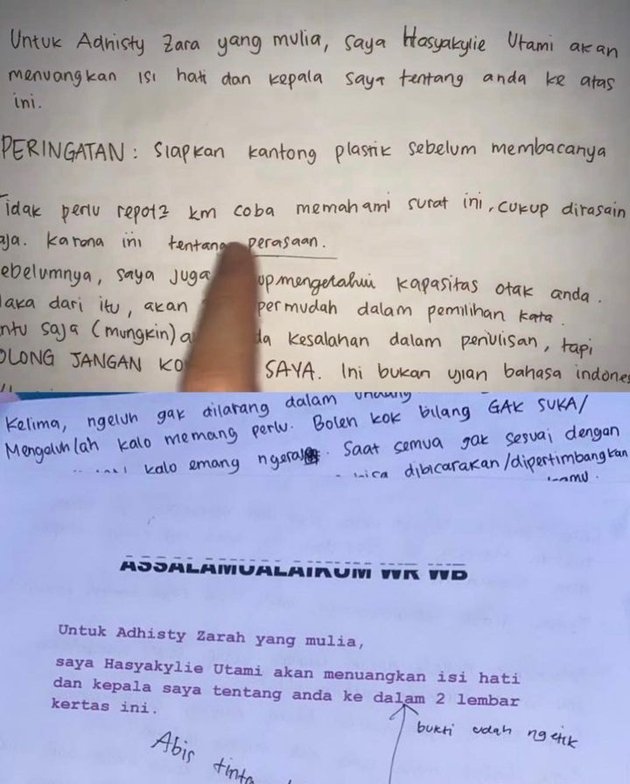 Untuk Adhisty Zara yang mulia, saya Hasyakylie Utami akan
menuangkan isi hati dan kepala saya tentang anda ke atas
ini.
PERINGATAN : Siapkan kantong plastik sebelum membacanya
Tidak perlu repot2 km coba memahami surat ini, cukup dirasain
aja. Karena ini tentang perasaan.
ebelumnya, saya juga mengetahui kapasitas otak anda.
aka dari itu, akan permudah dalam pemilihan kata.
ntu saja (mungkin) a da kesalahan dalam penulisan, tapi
OLONG JANGAN KO SAYA. Ini bukan ujian bahasa indones
Kelima, ngeluh gak dilarang dalam undang
Mengeluhlah kalo memang perlu. Boleh kok bilang GAK SUKA/
kalo emang Saat semua gak sesuai dengan
bisa dibicarakan/dipertimbangkan
kamu.
ASSALAMUALAIKUM WR WB
Untuk Adhisty Zarah yang mulia,
saya Hasyakylie Utami akan menuangkan isi hati
dan kepala saya tentang anda ke dalam 2 lembar
kertas ini.
bukti udah ngetik
Abis tinta